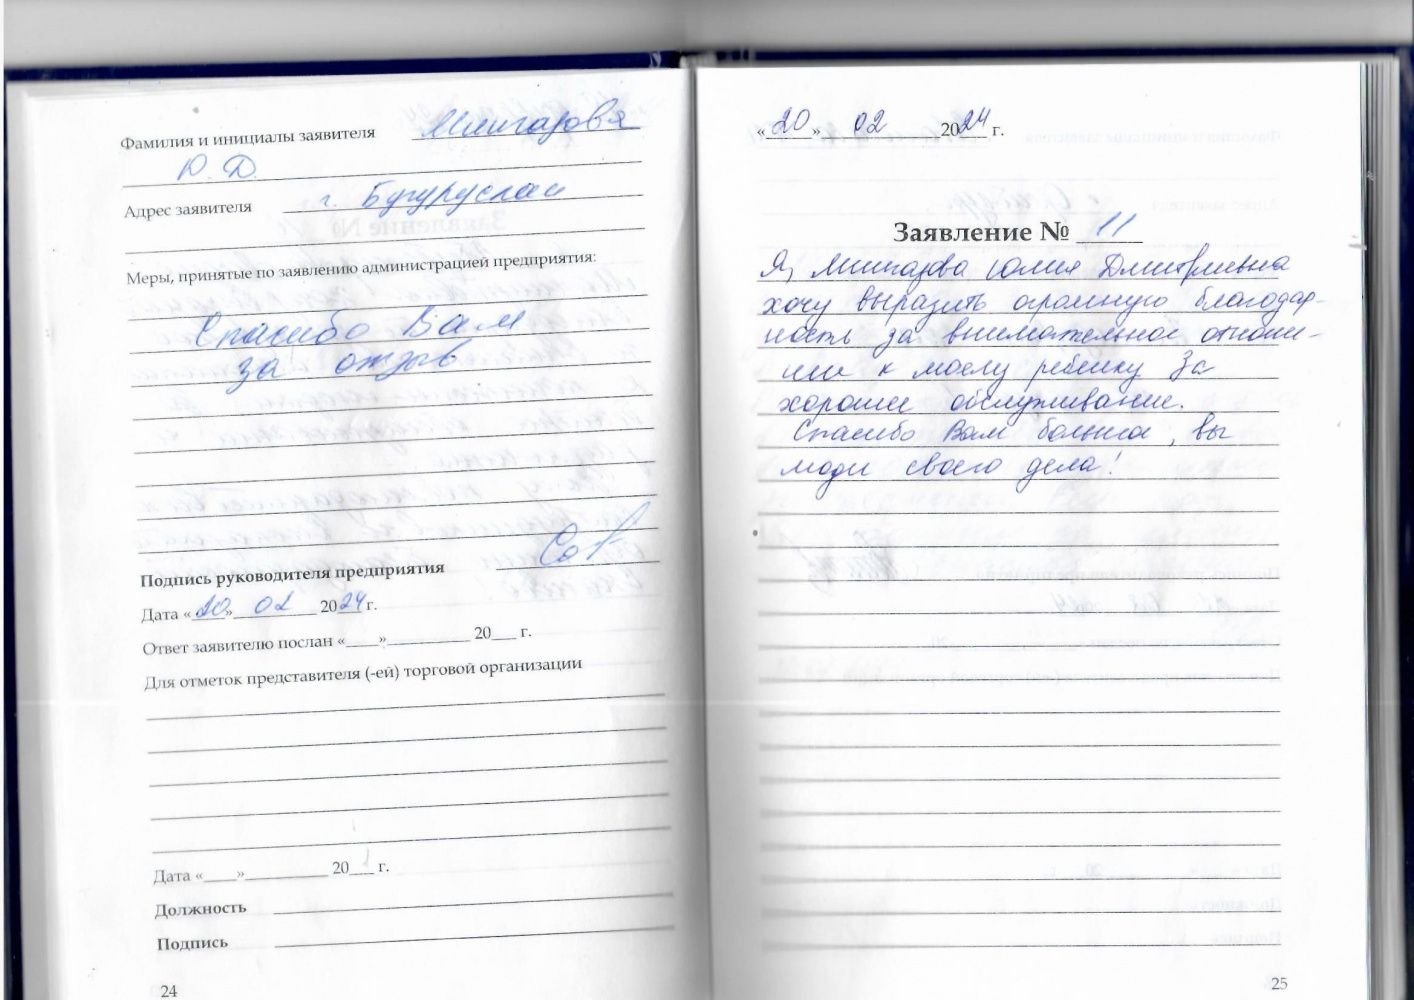 Фамилия и инициалы заявителя Мингазова
Ю. Д.
Адрес заявителя г. Бугуруслан
Меры, принятые по заявлению администрацией предприятия:
Спасибо Вам
за отзыв
Подпись руководителя предприятия
Дата «20» 02 2024 г.
Ответ заявителю послан «___»__________ 20___ г.
Для отметок представителя (-ей) торговой организации
Дата «____»__________ 20___ г.
Должность
Подпись
24
«20» 02 2024 г.
Заявление № 11
Я, Мингазова Юлия Дмитриевна
хочу выразить огромную благодар-
ность за внимательное отноше-
ние к моему ребенку За
хорошее обслуживание.
Спасибо Вам большое, вы
люди своего дела!
25